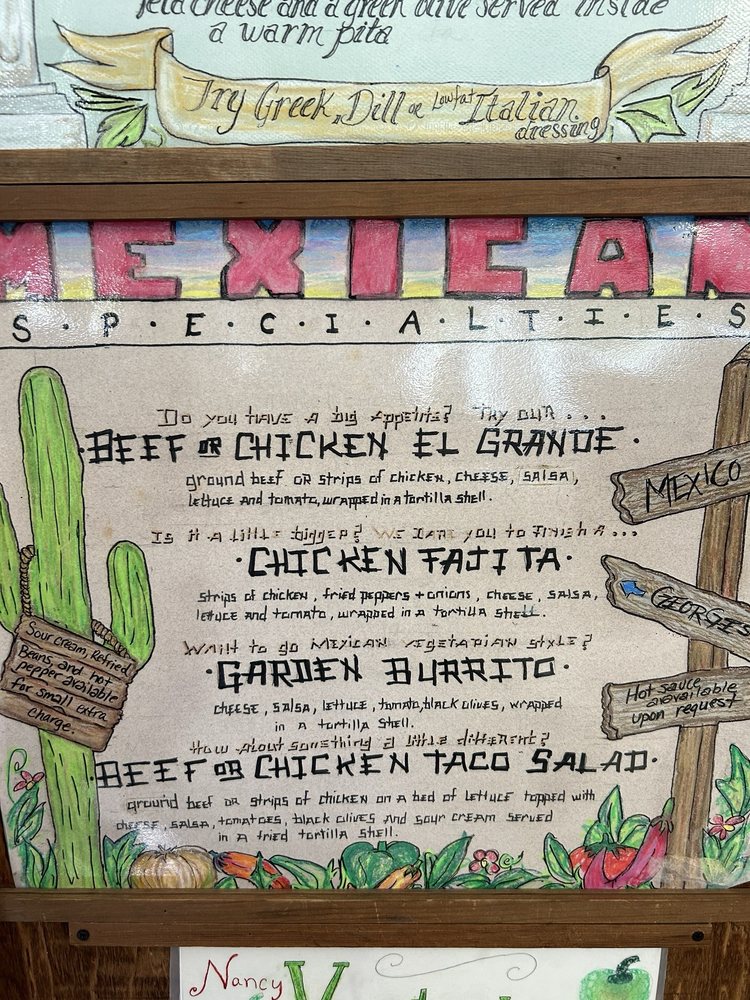 feta cheese and a green olive served inside
a warm pita
Try Greek, Dill or Lowfat Italian
dressing
MEXICAN
S·P·E·C·I·A·L·T·I·E·S
Do you have a big Appetite? Try our...
·BEEF OR CHICKEN EL GRANDE·
ground beef OR strips of chicken, cheese, salsa,
lettuce and tomato, wrapped in a tortilla shell.
MEXICO
Is it a little bigger? We Dare you to finish A...
·CHICKEN FAJITA·
strips of chicken, fried peppers + onions, cheese, salsa,
lettuce and tomato, wrapped in a tortilla shell.
GEORGES
Sour cream, Refried
Beans, and hot
pepper available
for small extra
charge.
Want to go Mexican vegetarian style?
·GARDEN BURRITO·
cheese, salsa, lettuce, tomato, black olives, wrapped
in a tortilla shell.
Hot sauce
avavailable
upon request
How about something a little different?
BEEF OR CHICKEN TACO SALAD·
ground beef OR strips of chicken on a bed of lettuce topped with
cheese, salsa, tomatoes, black olives and sour cream served
in a fried tortilla shell.
Nancy